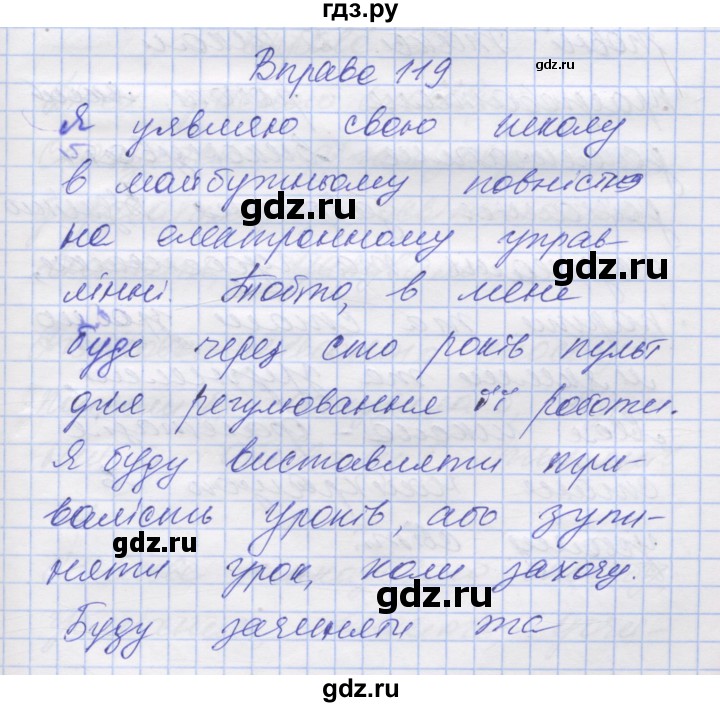 гдз.ру
Вправа 119
gdz.ru
Я уявляю свою школу
в майбутньому повністю
gdz.ru
на електронному управ-
gdz.ru
лінні. Тобто, в мене
буде через сто років пульт
gdz.ru
для регулювання її роботи.
Я буду виставляти три-
валість уроків, або зупи-
gdz.ru
няти урок, коли захочу.
gdz.ru
Буду зачиняти та
gdz.ru
gdz.ru